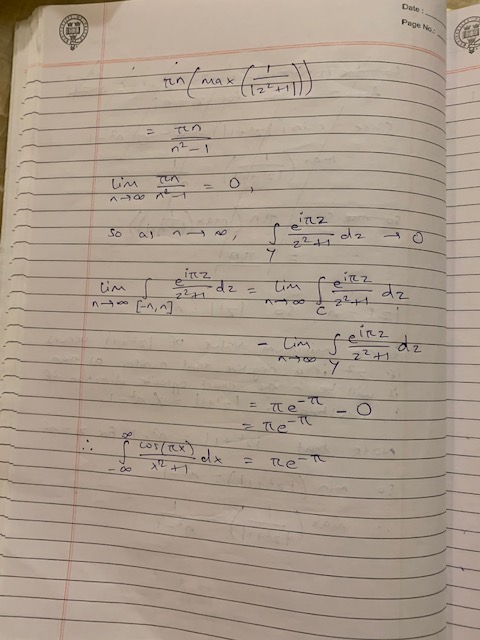 Date :
Page No. :
πn(max(1/|z²+1|))
= πn/n²-1
lim n→∞ πn/n²-1 = 0,
so as n→∞, ∫γ e^iπz/z²+1 dz → 0
lim n→∞ ∫[-n,n] e^iπz/z²+1 dz = lim n→∞ ∫C e^iπz/z²+1 dz
- lim n→∞ ∫γ e^iπz/z²+1 dz
= πe^-π - 0
= πe^-π
∴ ∫-∞^∞ cos(πx)/x²+1 dx = πe^-π